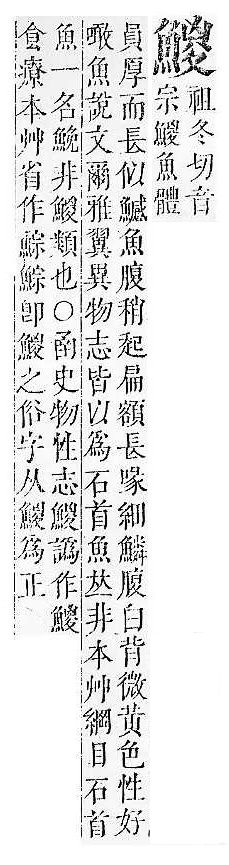 鯼
祖冬切音
宗鯼魚體
員厚而長似鱤魚腹稍起扁額長喙細鱗腹白背微黃色性好
噉魚說文爾雅翼異物志皆以為石首魚𠀤非本艸綱目石首
魚一名鮸非鯼類也○函史物性志鯼譌作鯼
食療本艸省作鯮鯮卽鯼之俗字从鯼為正